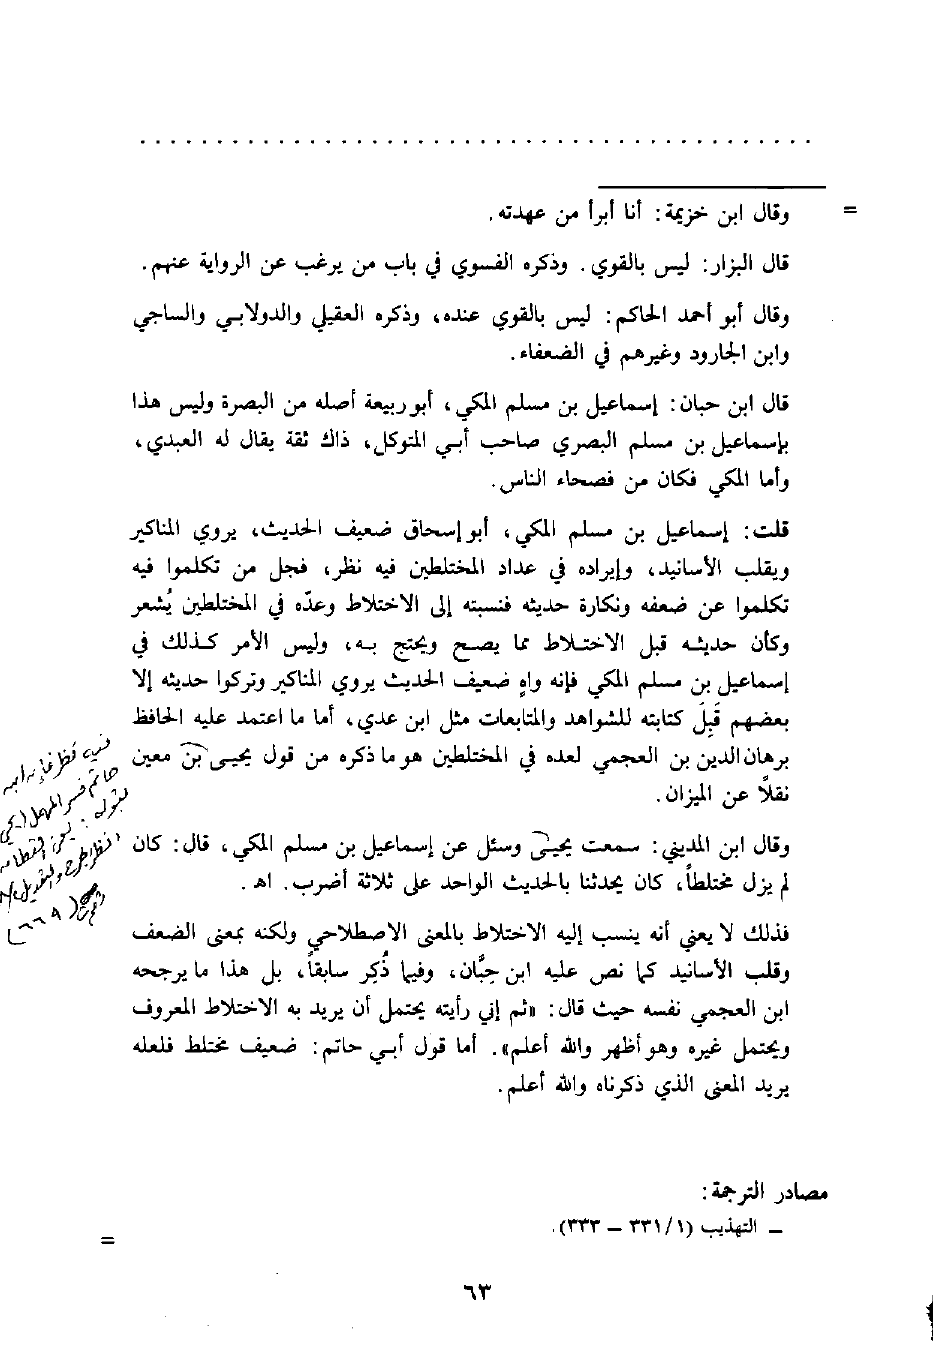 = وقال ابن خزيمة: أنا أبرأ من عهدته.
قال البزار: ليس بالقوي. وذكره الفسوي في باب من يرغب عن الرواية عنهم.
وقال أبو أحمد الحاكم: ليس بالقوي عنده، وذكره العقيلي والدولابي والساجي
وابن الجارود وغيرهم في الضعفاء.
قال ابن حبان: إسماعيل بن مسلم المكي، أبو ربيعة أصله من البصرة وليس هذا
بإسماعيل بن مسلم البصري صاحب أبي المتوكل، ذاك ثقة يقال له العبدي،
وأما المكي فكان من فصحاء الناس.
قلت: إسماعيل بن مسلم المكي، أبو إسحاق ضعيف الحديث، يروي المناكير
ويقلب الأسانيد، وإيراده في عداد المختلطين فيه نظر، فجل من تكلموا فيه
تكلموا عن ضعفه ونكارة حديثه فنسبته إلى الاختلاط وعدّه في المختلطين يُشعر
وكأن حديثه قبل الاختلاط مما يصح ويحتج به، وليس الأمر كذلك في
إسماعيل بن مسلم المكي فإنه واهٍ ضعيف الحديث يروي المناكير وتركوا حديثه إلا
بعضهم قَبِلَ كتابته للشواهد والمتابعات مثل ابن عدي، أما ما اعتمد عليه الحافظ
برهان الدين بن العجمي لعده في المختلطين هو ما ذكره من قول يحيى بن معين
نقلاً عن الميزان.
وقال ابن المديني: سمعت يحيى وسئل عن إسماعيل بن مسلم المكي، قال: كان
لم يزل مختلطاً، كان يحدثنا بالحديث الواحد على ثلاثة أضرب. اهـ.
فذلك لا يعني أنه ينسب إليه الاختلاط بالمعنى الاصطلاحي ولكنه بمعنى الضعف
وقلب الأسانيد كما نص عليه ابن حِبَّان، وفيما ذُكِر سابقاً، بل هذا ما يرجحه
ابن العجمي نفسه حيث قال: «ثم إني رأيته يحتمل أن يريد به الاختلاط المعروف
ويحتمل غيره وهو أظهر والله أعلم». أما قول أبي حاتم: ضعيف مختلط فلعله
يريد المعنى الذي ذكرناه والله أعلم.
فيه نظر
حاتم فسر
بقوله: يعني القطان
انظر الجرح والتعديل
(٦٦٩)
مصادر الترجمة:
– التهذيب (٣٣١/١ – ٣٣٣).
=
٦٣